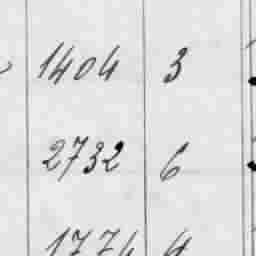 1404 3
2732 6
1774 4